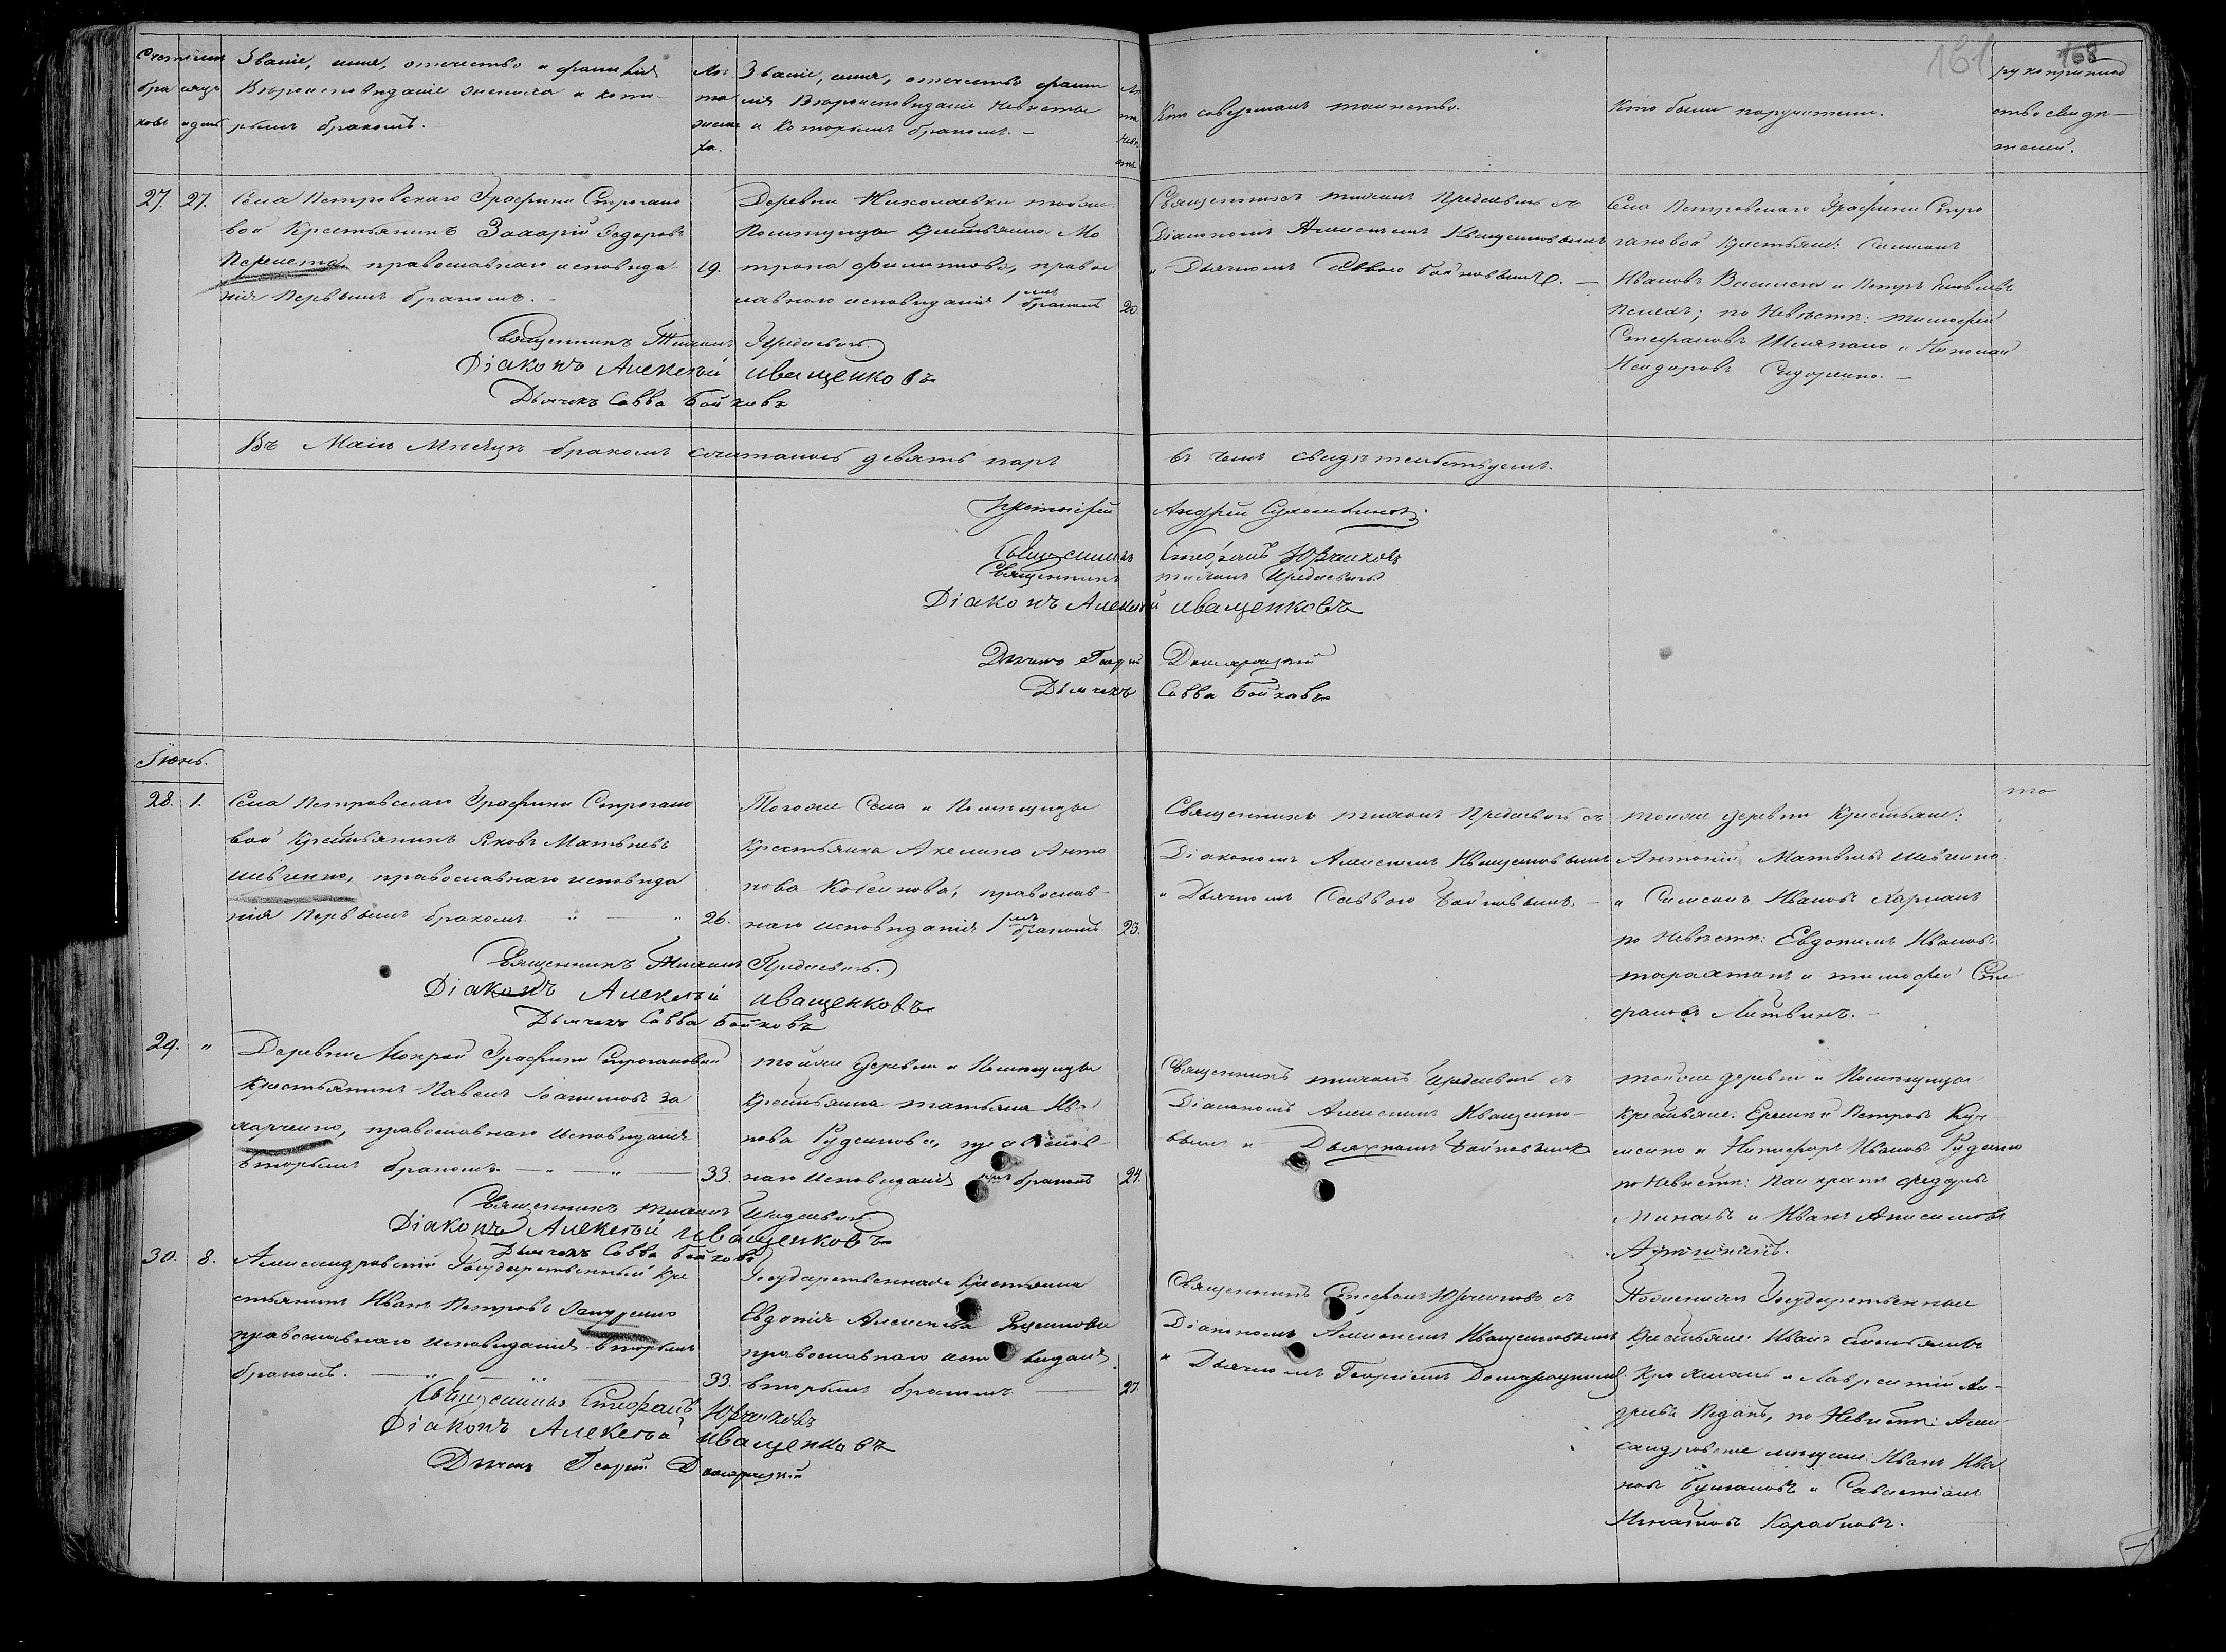 161 168
Счетъ
бра
ковъ
мѣсяцъ
и день
Званіе, имя, отчество и фамилія
Вѣроисповѣданіе жениха и кото
рымъ бракомъ.
Лѣ
та
жени
ха.
Званіе, имя, отчество фами
лія Вѣроисповѣданіе невѣсты
и которымъ бракомъ.
Лѣ
та
невѣ
сты
Кто совершалъ таинство.
Кто были поручители.
рукоприклад
ство свидѣ
телей.
27. 27.
Села Петровскаго Графини Строгано
вой Крестьянинъ Захарій Федоровъ
Перепета православнаго исповѣда
нія первымъ бракомъ.
19.
Деревни Николаевки той же
Помѣщицы крестьянка Ма
трона Филиппова, правос
лавнаго исповѣданія 1мъ бракомъ
20.
Священникъ Тихонъ Предаевичъ съ
Діакономъ Алексѣемъ Иващенковымъ
и Дьячкомъ Саввою Бойковымъ.
Села Петровскаго Графини Стро
гановой крестьяне: Симеонъ
Ивановъ и Петръ
по Невѣстѣ: Тимофей
Стефановъ и Николай
Исидоровъ Сидоренко.
Священникъ Тихонъ Предаевичъ
Діаконъ Алексѣй Иващенковъ
Дьячекъ Савва Бойковъ
Въ Маѣ Мѣсяцѣ бракомъ сочеталось девять паръ въ чемъ свидѣтельствуемъ.
Протоіерей Андрей
Священникъ Стефанъ Юрченковъ
Священникъ Тихонъ Предаевичъ
Діаконъ Алексѣй Иващенковъ
Дьячекъ Георгій Домарацкій
Дьячекъ Савва Бойковъ
Іюнь.
28. 1.
Села Петровскаго Графини Строгано
вой Крестьянинъ Яковъ Матвѣевъ
Шевченко, православнаго исповѣда
нія первымъ бракомъ
26.
Того же Села и Помѣщицы
Крестьянка Акелина Анто
нова Кобенкова, православ
наго исповѣданія 1мъ бракомъ
23.
Священникъ Тихонъ Предаевичъ съ
Діакономъ Алексѣемъ Иващенковымъ
и Дьячкомъ Саввою Бойковымъ.
той же деревни Крестьяне:
Антоній Матвѣевъ Шевченко
и Симеонъ Ивановъ Харманъ
по Невѣстѣ: Евдокимъ Ивановъ
и Тимофей Сте
фановъ Литвинъ.
то
Священникъ Тихонъ Предаевичъ.
Діаконъ Алексѣй Иващенковъ
Дьячекъ Савва Бойковъ
29. "
Деревни Мокрой Графини Строгановой
Крестьянинъ Павелъ Іоакимовъ За
харченко, православнаго исповѣданія
вторымъ бракомъ
33.
той же Деревни и Помѣщицы
Крестьянка Татьяна Ива
нова Руденкова, православ
наго исповѣданія бракомъ
24.
Священникъ Тихонъ Предаевичъ съ
Діакономъ Алексѣемъ Иващенко
вымъ и Дьячкомъ Бойковымъ
той же деревни и Помѣщицы
крестьяне: Еремѣй Петровъ
и Никифоръ Ивановъ Руденко
по Невѣстѣ: Панкратъ Федоровъ
Минаевъ и Иванъ Анисимовъ
Священникъ Тихонъ Предаевичъ
Діаконъ Алексѣй Иващенковъ
Дьячекъ Савва Бойковъ
30. 8.
Александровскій Государственный Кре
стьянинъ Иванъ Петровъ
православнаго исповѣданія вторымъ
бракомъ.
33.
Государственная Крестьянка
Евдокія Алексѣева
православнаго исповѣданія
вторымъ бракомъ
27.
Священникъ Стефанъ Юрченковъ съ
Діакономъ Алексѣемъ Иващенковымъ
и Дьячкомъ Георгіемъ Домарацкимъ
Государственные
Крестьяне: Иванъ Емельяновъ
и Лаврентій Ан
дреевъ по Невѣстѣ: Алек
сандровские мѣщане: Иванъ Ива
новъ и Савастіанъ
Игнатовъ Карабковъ.
Священникъ Стефанъ Юрченковъ
Діаконъ Алексѣй Иващенковъ
Дьячекъ Георгій Домарацкій